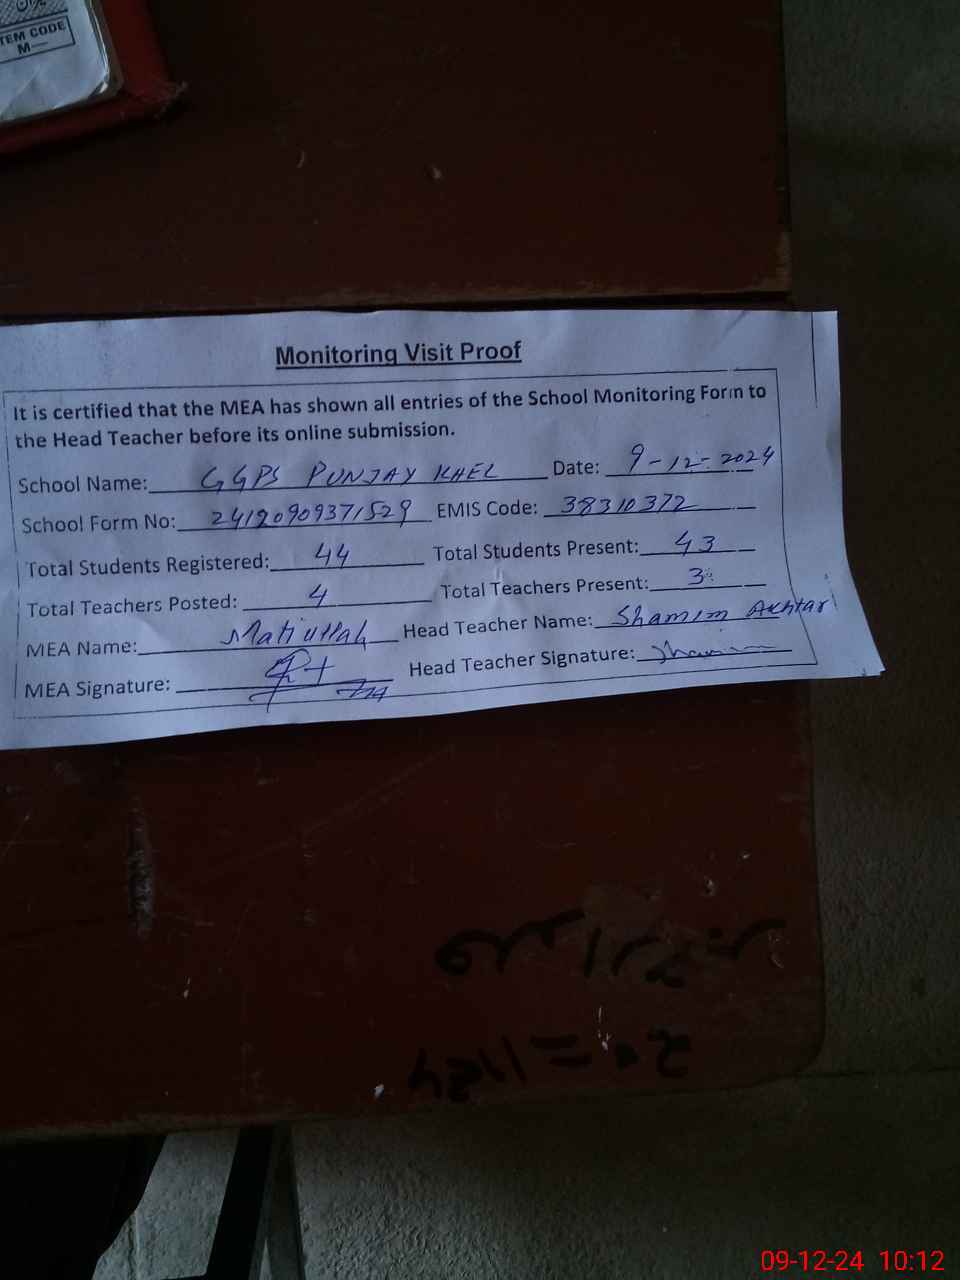 TEM CODE
M—
Monitoring Visit Proof
It is certified that the MEA has shown all entries of the School Monitoring Form to
the Head Teacher before its online submission.
School Name: GGPS PUNJAY KHEL Date: 9-12-2024
School Form No: 24120909371529 EMIS Code: 38310372
Total Students Registered: 44 Total Students Present: 43
Total Teachers Posted: 4 Total Teachers Present: 3
MEA Name: Matiullah Head Teacher Name: Shamim Akhtar
MEA Signature: Head Teacher Signature: Shamim
09-12-24 10:12